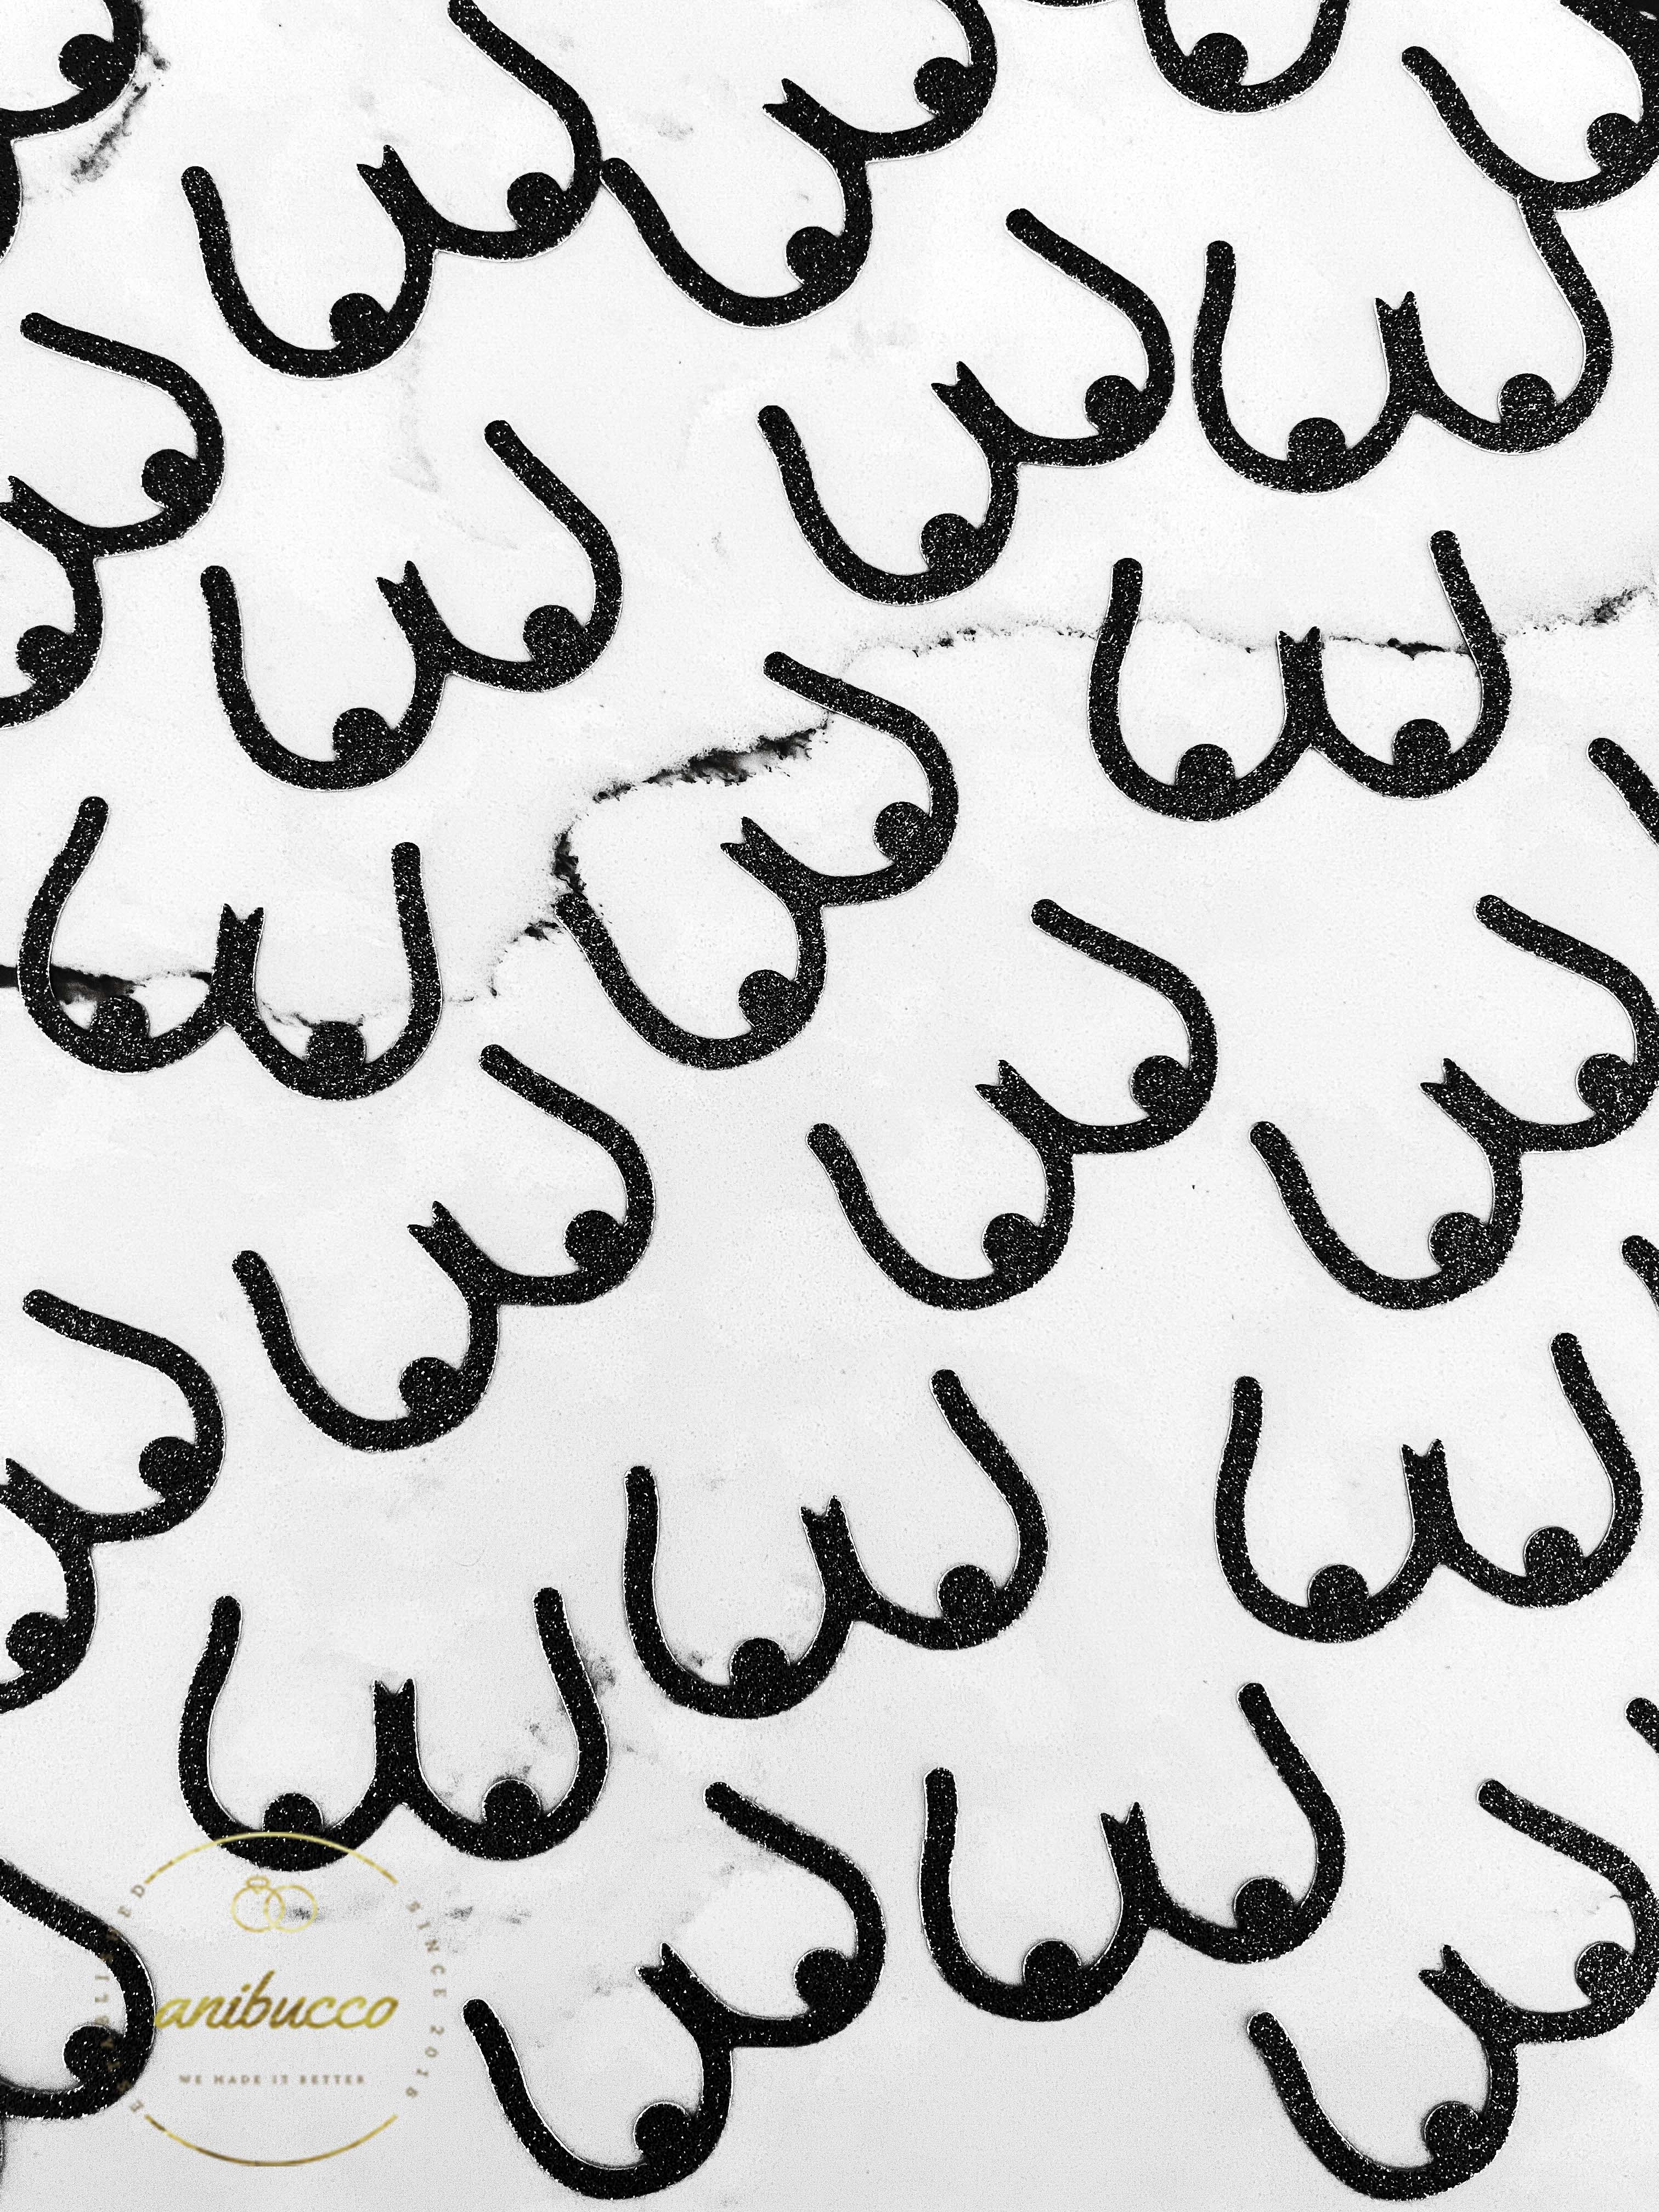 ESTABLISHED
SINCE 2016
anibucco
WE MADE IT BETTER